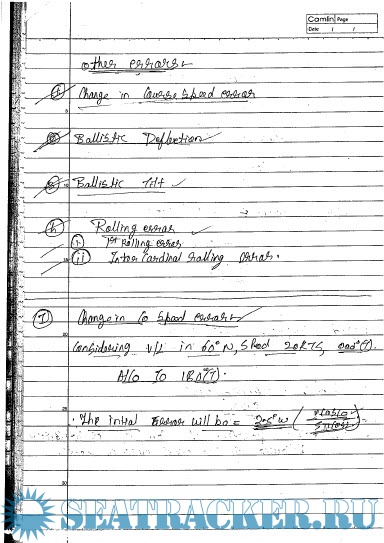 Camlin Page
Date / /
other errors
① Change in Course Speed error
② Ballistic Deflection
③ Ballistic Tilt
④ Rolling error
i. 1st Rolling error
ii Inter Cardinal rolling error.
① Change in Co Speed errors
Considering v/l in 60° N, Speed 20KTS, 000°(T).
A/Co To 180°(T).
The intial error will be = 2.5° W (
SEATRACKER.RU